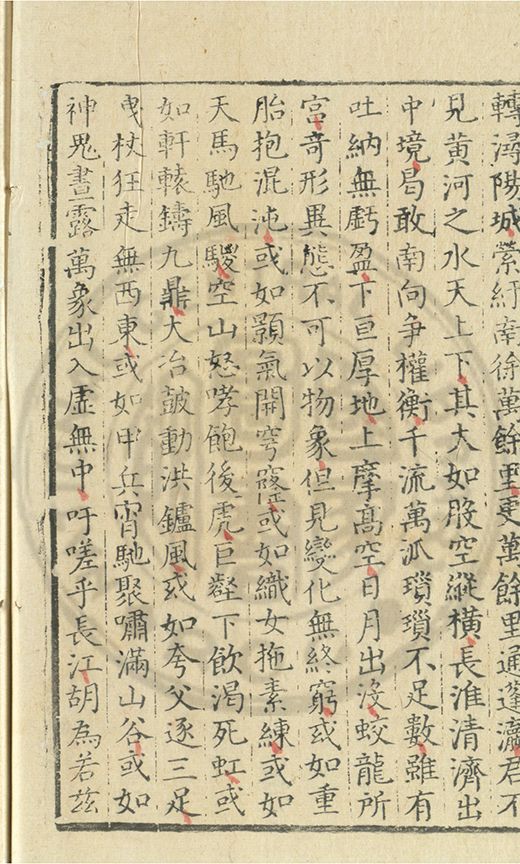 轉潯陽城縈紆南徐萬餘里更萬餘里通蓬瀛君不
見黃河之水天上下其大如股空縱橫長淮清濟出
中境曷敢南向爭權衡千流萬派瑣瑣不足數雖有
吐納無虧盈下亘厚地上摩高空日月出沒蛟龍所
宮奇形異態不可以物象但見變化無終窮或如重
胎抱混沌或如顥氣開穹窿或如織女拖素練或如
天馬馳風騣空山怒哮飽後虎巨壑下飲渴死虹或
如軒轅鑄九鼎大冶鼓動洪鑪風或如夸父逐三足
曳杖狂走無西東或如甲兵宵馳聚嘯滿山谷或如
神鬼晝露萬象出入虛無中吁嗟乎長江胡為若茲